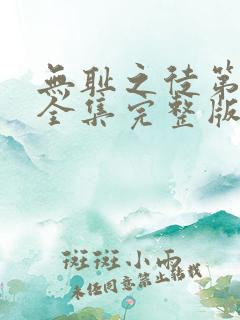 無耻之徒第
全集完整版
斑斑小雨
未经同意禁止转载